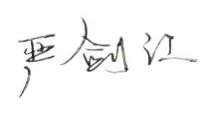 严剑江